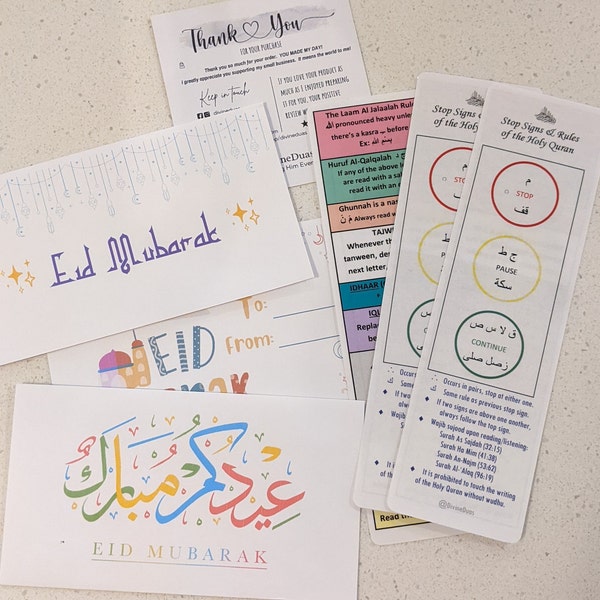 Thank You
FOR YOUR PURCHASE
Thank you so much for your order. YOU MADE MY DAY!
I greatly appreciate you supporting my small business. It means the world to me!
Keep in touch
IF YOU LOVE YOUR PRODUCT AS
MUCH AS I ENJOYED PREPARING
IT FOR YOU, YOUR POSITIVE
REVIEW
Eid Mubarak
To:
From:
EID
عيدكم مبارك
EID MUBARAK
The Laam Al Jalaalah Rule
الله pronounced heavy unless
there's a kasra before
Ex:
Huruf Al-Qalqalah
If any of the above
are read with a
read it with an
Ghunnah is a
م ن Always read
Whenever the
tanween,
next letter,
IDHAAR
Read
Stop Signs & Rules
of the Holy Quran
STOP
Occurs in
Same rule
If two
always
Wajib
It is
of the
Stop Signs & Rules
of the Holy Quran
م
STOP
قف
ج ط
PAUSE
سكتة
ق لا س ص
CONTINUE
ز صل صلى
Occurs in pairs, stop at either one.
Same rule as previous stop sign.
If two signs are above one another,
always follow the top sign.
Wajib sujood upon reading/listening:
Surah As Sajdah (32:15)
Surah Ha Mim (41:38)
Surah An-Najm (53:62)
Surah Al-Alaq (96:19)
It is prohibited to touch the writing
of the Holy Quran without wudhu.
@DivineDuas